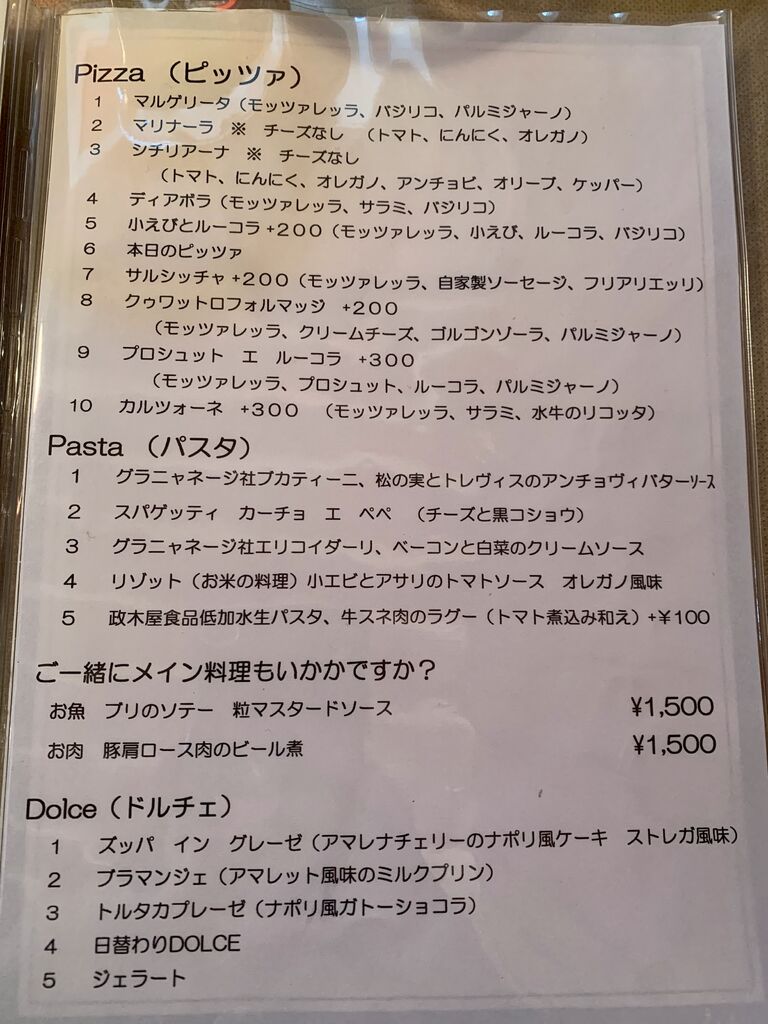 Pizza （ピッツァ）
1 マルゲリータ（モッツァレッラ、バジリコ、パルミジャーノ）
2 マリナーラ ※ チーズなし （トマト、にんにく、オレガノ）
3 シチリアーナ ※ チーズなし
（トマト、にんにく、オレガノ、アンチョビ、オリーブ、ケッパー）
4 ディアボラ（モッツァレッラ、サラミ、バジリコ）
5 小えびとルーコラ+200（モッツァレッラ、小えび、ルーコラ、バジリコ）
6 本日のピッツァ
7 サルシッチャ+200（モッツァレッラ、自家製ソーセージ、フリアリエッリ）
8 クゥワットロフォルマッジ +200
（モッツァレッラ、クリームチーズ、ゴルゴンゾーラ、パルミジャーノ）
9 プロシュット エ ルーコラ +300
（モッツァレッラ、プロシュット、ルーコラ、パルミジャーノ）
10 カルツォーネ +300 （モッツァレッラ、サラミ、水牛のリコッタ）
Pasta （パスタ）
1 グラニャネージ社ブカティーニ、松の実とトレヴィスのアンチョヴィバターソース
2 スパゲッティ カーチョ エ ペペ （チーズと黒コショウ）
3 グラニャネージ社エリコイダーリ、ベーコンと白菜のクリームソース
4 リゾット（お米の料理）小エビとアサリのトマトソース オレガノ風味
5 政木屋食品低加水生パスタ、牛スネ肉のラグー（トマト煮込み和え）+¥100
ご一緒にメイン料理もいかかですか？
お魚 ブリのソテー 粒マスタードソース ¥1,500
お肉 豚肩ロース肉のビール煮 ¥1,500
Dolce（ドルチェ）
1 ズッパ イン グレーゼ（アマレナチェリーのナポリ風ケーキ ストレガ風味）
2 ブラマンジェ（アマレット風味のミルクプリン）
3 トルタカプレーゼ（ナポリ風ガトーショコラ）
4 日替わりDOLCE
5 ジェラート